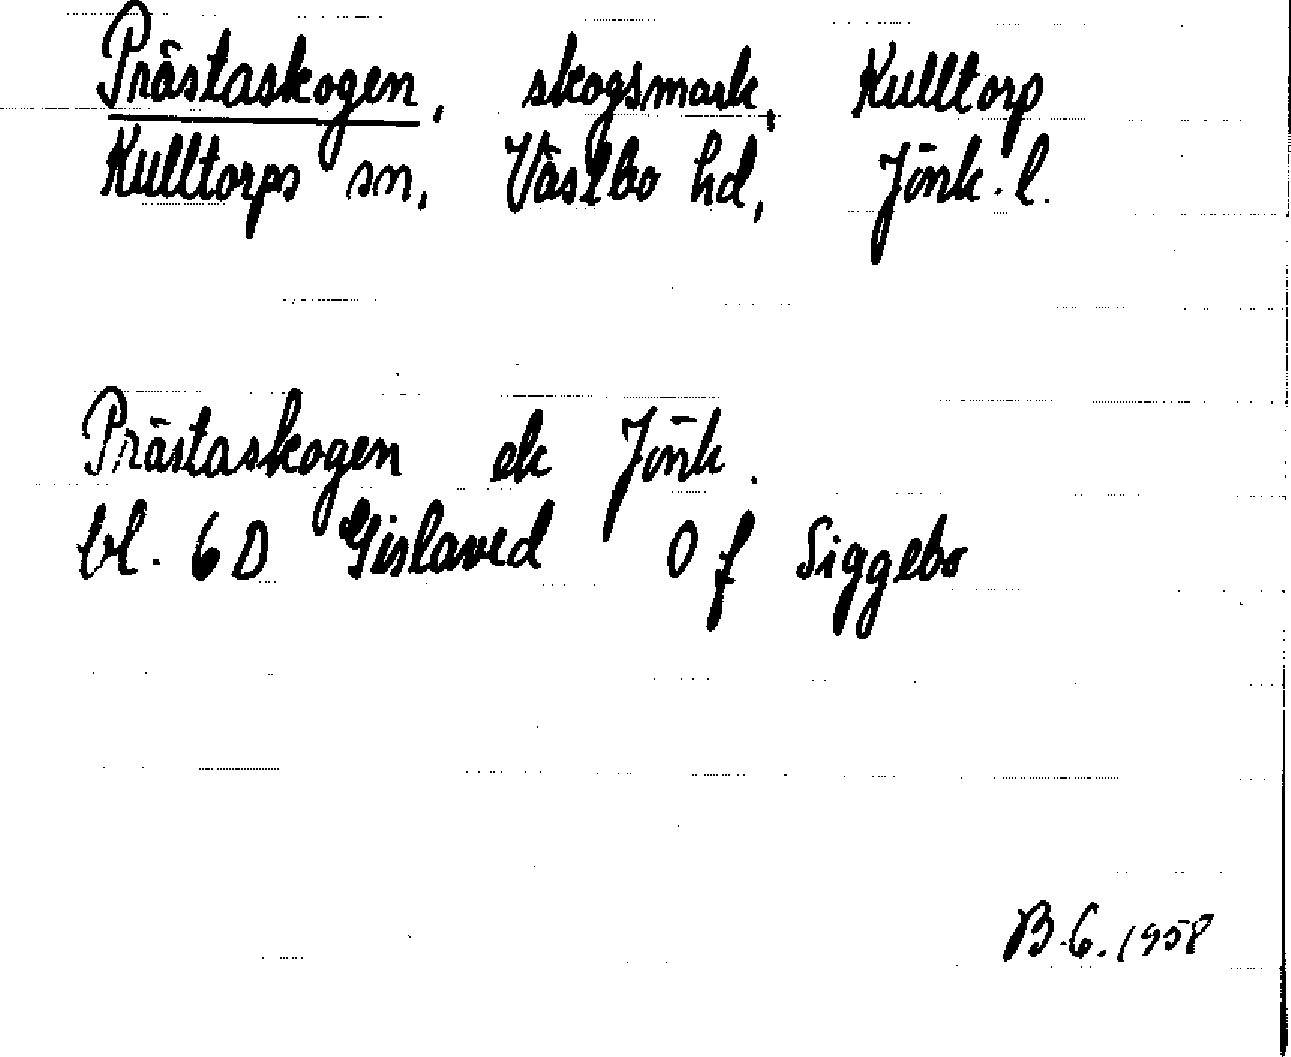 Prästaskogen, skogsmark, Kulltorp
Kulltorps sn, Västbo hd, Jönk. l.
Prästaskogen ek Jönk.
bl. 6D Gislaved 0 f Siggebo
B.G. 1958